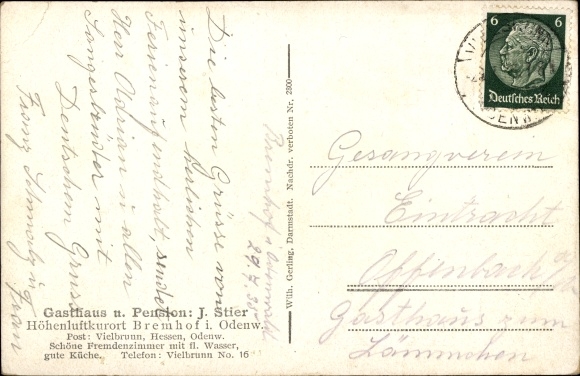 Die besten Grüsse von
unserem herrlichen
Ferienaufenthalt, sendet
Herr Adrian u. allen
Sangesbrüder mit
Deutschem Gruss
Franz u. Frau
Bremhof i. Odenwald
29.7.
Gasthaus u. Pension: J. Stier
Höhenluftkurort Bremhof i. Odenw.
Post: Vielbrunn, Hessen, Odenw.
Schöne Fremdenzimmer mit fl. Wasser,
gute Küche. Telefon: Vielbrunn No. 16
Wilh. Gerling, Darmstadt. Nachdr. verboten Nr. 2800
6 6
Deutsches Reich
Gesangverein
Eintracht
Offenbach a/M
Gasthaus zum
Lämmchen